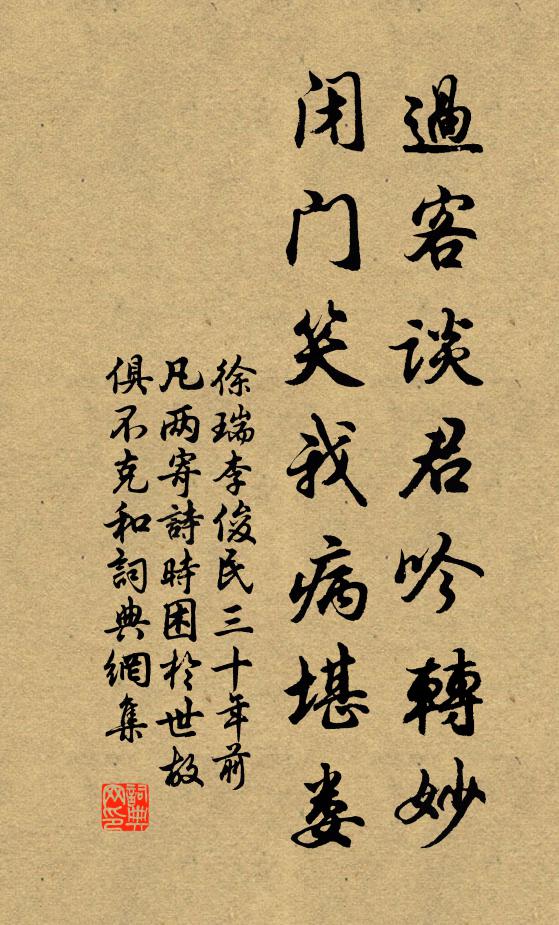 過客談君吟轉妙
闭门笑我病堪娄
徐瑞李俊民三十年前
凡两寄詩時困於世故
俱不克和詞典網集
詞典网印